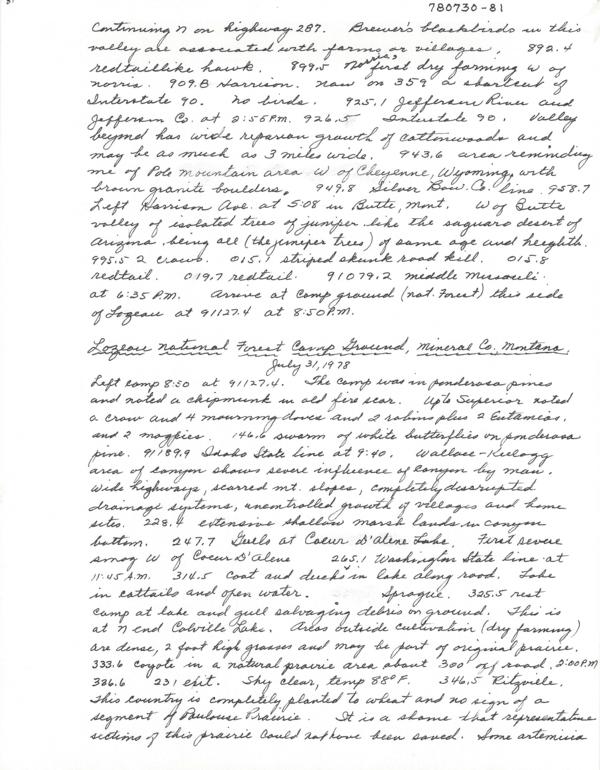 780730-81
Continuing N on highway 287. Brewer's blackbirds in this
valley are associated with farms or villages. 892.4
redtaillike hawk. 899.5 Norris, first dry farming W of
Norris. 909.8 Harrison. Now on 359 a shortcut of
Interstate 90. No birds. 925.1 Jefferson River and
Jefferson Co. at 2:55 P.M. 926.5 Interstate 90. Valley
beyond has wide reparian growth of cottonwoods and
may be as much as 3 miles wide. 943.6 area reminding
me of Pole Mountain area W of Cheyenne, Wyoming, with
brown granite boulders. 949.8 Silver Bow Co. line. 958.7
Left Harrison Ave. at 5:08 in Butte, Mont. W of Butte
valley of isolated trees of juniper like the saguaro desert of
Arizona being all (the juniper trees) of same age and heighth.
995.5 2 crows. 015.1 striped skunk road kill. 015.8
redtail. 019.7 redtail. 91079.2 middle Missouli
at 6:35 P.M. Arrive at Camp ground (Nat. Forest) this side
of Lozeau at 91127.4 at 8:50 P.M.
Lozeau National Forest Camp Ground, Mineral Co. Montana.
July 31, 1978
Left camp 8:50 at 91127.4. The camp was in ponderosa pines
and noted a chipmunk in old fire scar. Up to Superior noted
a crow and 4 mourning doves and 2 robins plus 2 Eutamias.
and 2 magpies. 146.6 swarm of white butterflies on ponderosa
pine. 91189.9 Idaho State line at 9:40. Wallace-Kellogg
area of canyon shows severe influence of canyon by man.
Wide highways, scarred mt. slopes, completely disscrupted
drainage systems, uncontrolled growth of villages and home
sites. 228.4 extensive shallow marsh lands in canyon
bottom. 247.7 Gulls at Coeur D'Alene Lake. First severe
smog W of Coeur D'Alene 265.1 Washington State line at
11:45 A.M. 314.5 Coot and ducks in lake along road. Lake
in cattails and open water. Sprague. 325.5 rest
camp at lake and gull salvaging debris on ground. This is
at N end Colville Lake. Areas outside cultivation (dry farming)
are dense, 2 foot high grasses and may be part of original prairie.
333.6 coyote in a natural prairie area about 300' off road. 2:00 P.M
336.6 231 exit. Sky clear, temp 88°F. 346.5 Ritzville.
This country is completely planted to wheat and no sign of a
segment of Paulouse Prairie. It is a shame that representative
sections of this prairie could not have been saved. Some artemisia